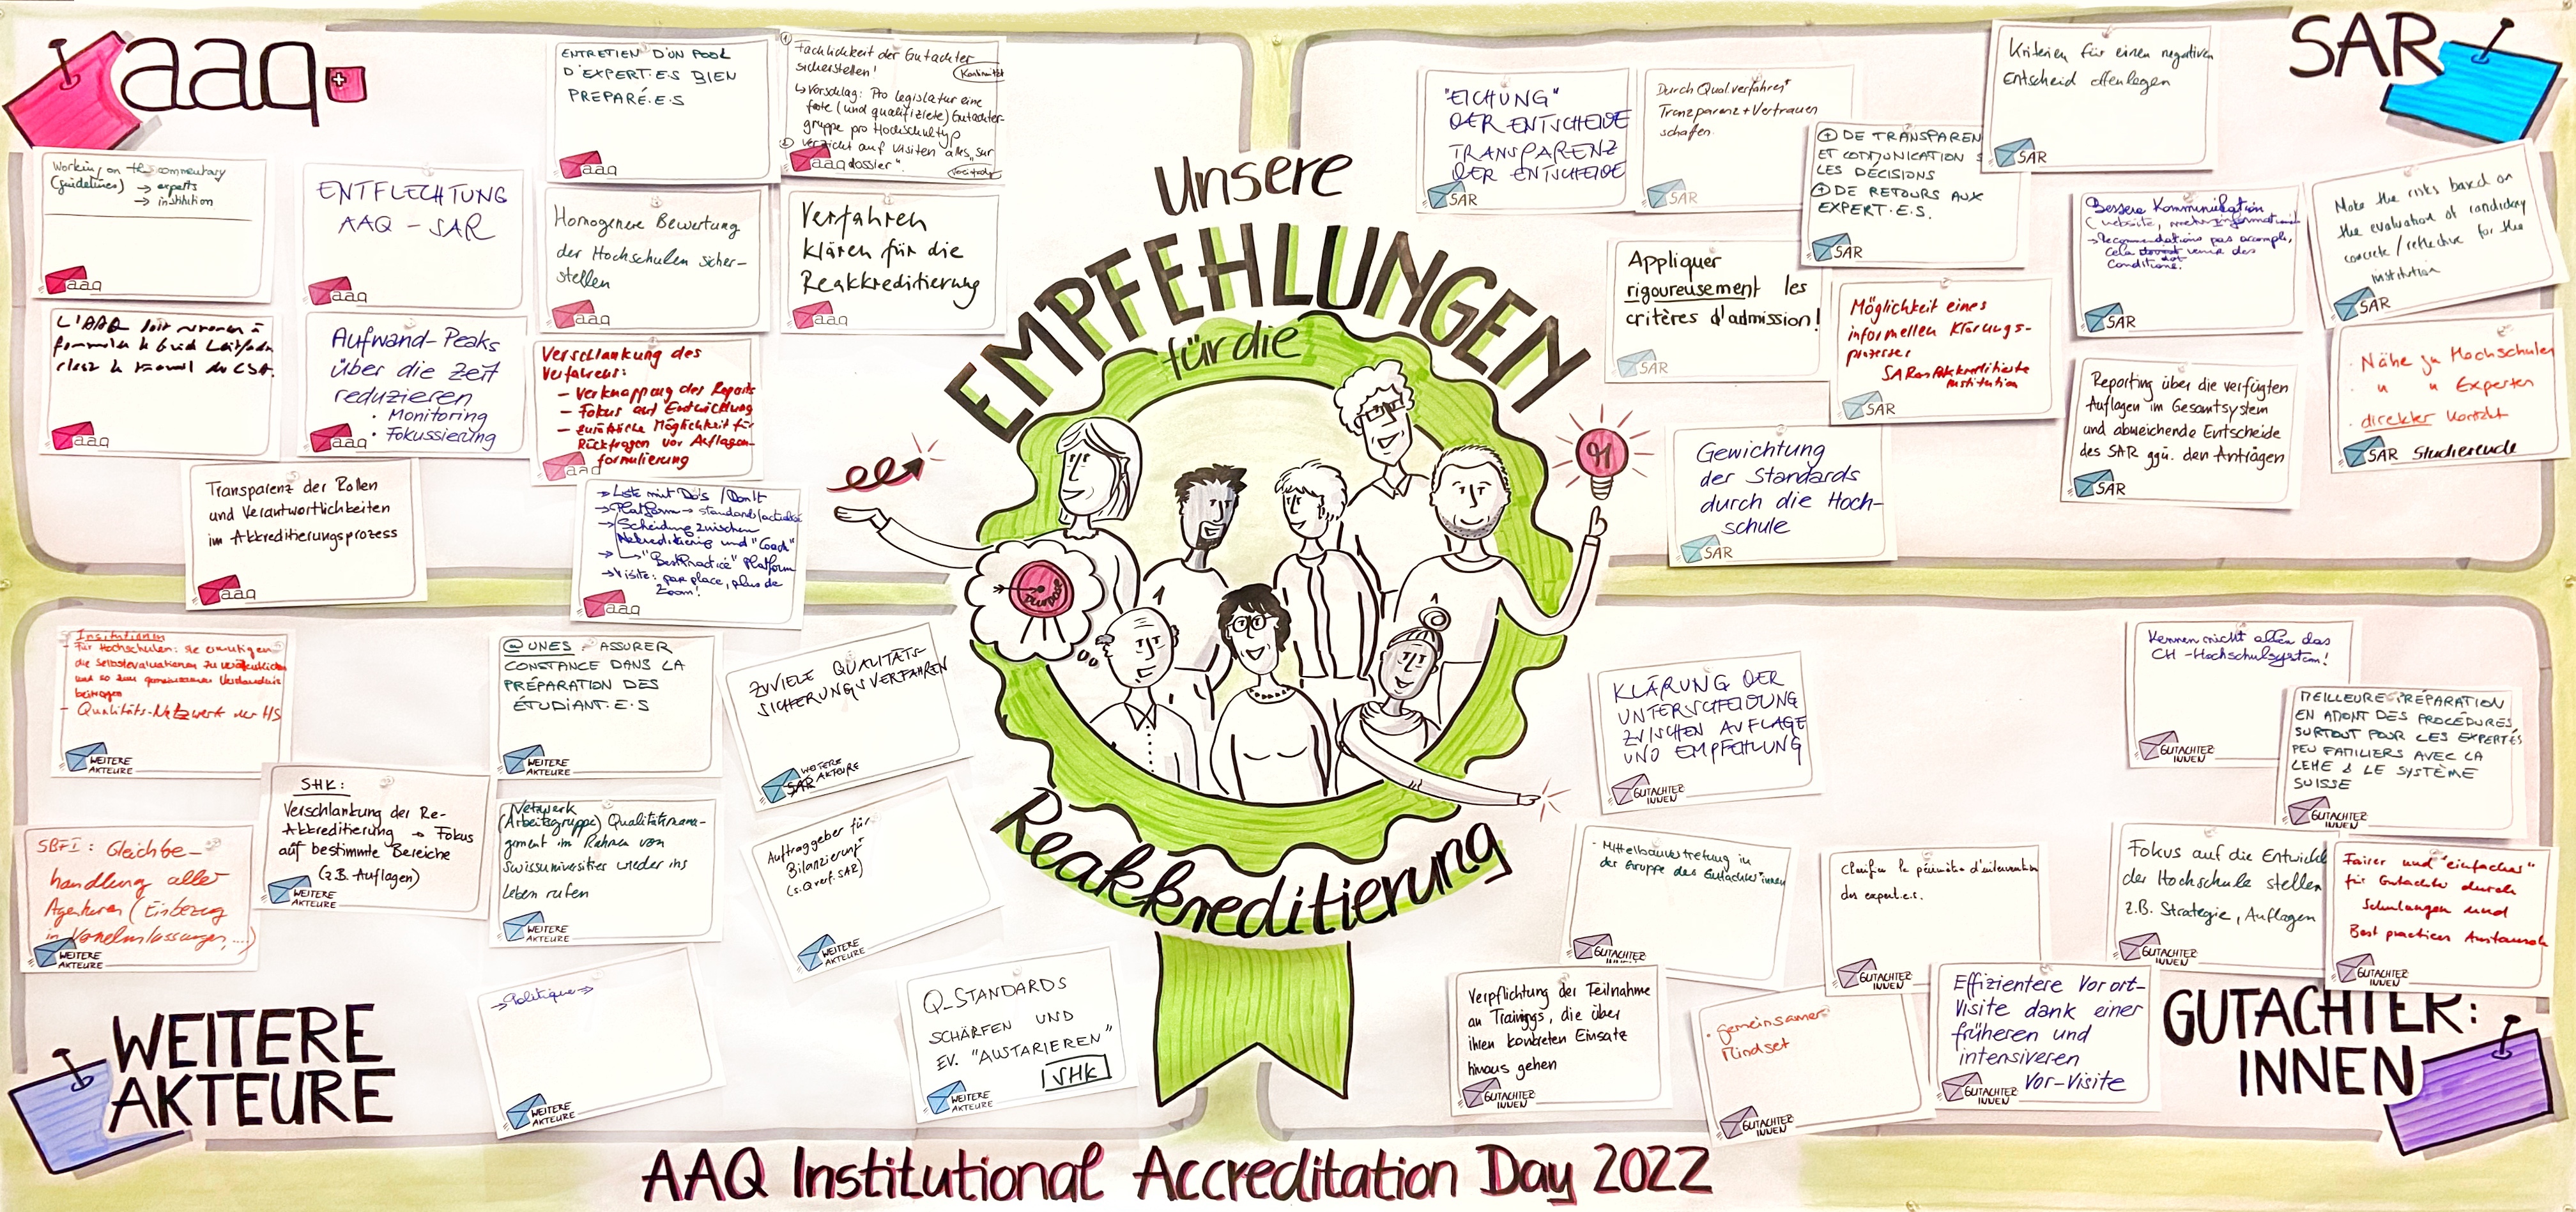 aaq
ENTRETIEN D'UN POOL
D'EXPERT.E.S BIEN
PREPARÉ.E.S
aaq
Fachlichkeit der Gutachter
sicherstellen!
Vorschlag: Pro Legislatur eine
feste (und qualifizierte) Gutachter-
gruppe pro Hochschultyp
Verzicht auf Visiten alles "sur
dossier".
aaq
Working on the commentary
(guidelines) → experts
→ institution
aaq
ENTFLECHTUNG
AAQ – SAR
aaq
Homogenere Bewertung
der Hochschulen sicher-
stellen
aaq
Verfahren
klären für die
Reakkreditierung
aaq
L'AAQ doit
aaq
Aufwand-Peaks
über die Zeit
reduzieren
• Monitoring
• Fokussierung
aaq
Verschlankung des
Verfahrens:
– Verknappung des Reports
– Fokus auf Entwicklung
– zusätzliche Möglichkeit für
Rückfragen vor Auflagen-
formulierung
aaq
Transparenz der Rollen
und Verantwortlichkeiten
im Akkreditierungsprozess
aaq
→ Liste mit Do's / Don't
→ Platform → standard/
→ Scheidung zwischen
Akkreditierung und "Coach"
→ "Best Practice" Platform
→ Visite: par place, plus de
Zoom!
aaq
Unsere
EMPFEHLUNGEN
für die
Reakkreditierung
PURPOSE
SAR
"EICHUNG"
DER ENTSCHEIDE
TRANSPARENZ
DER ENTSCHEIDE
SAR
Durch Qual.verfahren
Tranzparenz + Vertrauen
schafen
SAR
⊕ DE TRANSPAREN
ET COMMUNICATION
LES DÉCISIONS
⊕ DE RETOURS AUX
EXPERT.E.S.
SAR
Kriterien für einen negativen
Entscheid offenlegen
SAR
Bessere Kommunikation
(website,
→ Recommendations pas accompli,
cela venir des
Conditions.
SAR
Make the risks based on
the evaluation of
concrete / reflective for the
institution
SAR
Appliquer
rigoureusement les
critères d'admission!
SAR
Möglichkeit eines
informellen Klärungs-
prozesses
Akkreditierte
Institution
SAR
Reporting über die verfügten
Auflagen im Gesamtsystem
und abweichende Entscheide
des SAR ggü. den Anträgen
SAR
· Nähe zu Hochschulen
· " " Experten
· direkter Kontakt
Studierende
SAR
Gewichtung
der Standards
durch die Hoch-
schule
SAR
Institutionen
– Für Hochschulen: sie ermutigen
die Selbstevaluationen zu veröffentlichen
und so zum gemeinsamen Verständnis
beitragen
– Qualitäts-Netzwerk der HS
WEITERE
AKTEURE
@UNES ASSURER
CONSTANCE DANS LA
PRÉPARATION DES
ÉTUDIANT.E.S
WEITERE
AKTEURE
ZUVIELE QUALITÄTS-
SICHERUNGSVERFAHREN
WEITERE
SAR AKTEURE
SBFI: Gleichbe-
handlung aller
Agenturen (Einbezug
in Vernehmlassungen, ...)
WEITERE
AKTEURE
SHK:
Verschlankung der Re-
Akkreditierung → Fokus
auf bestimmte Bereiche
(z.B. Auflagen)
WEITERE
AKTEURE
Netzwerk
(Arbeitsgruppe) Qualitätsmana-
gement im Rahmen von
Swissuniversities wieder ins
Leben rufen
WEITERE
AKTEURE
Auftraggeber für
Bilanzierung
WEITERE
AKTEURE
→ Politique →
WEITERE
AKTEURE
Q_STANDARDS
SCHÄRFEN UND
EV. "AUSTARIEREN"
SHK
WEITERE
AKTEURE
WEITERE
AKTEURE
KLÄRUNG DER
UNTERSCHEIDUNG
ZWISCHEN AUFLAGE
UND EMPFEHLUNG
GUTACHTER
INNEN
Kennen nicht allen das
CH-Hochschulsystem!
GUTACHTER
INNEN
MEILLEURE PRÉPARATION
EN AMONT DES PROCÉDURES,
SURTOUT POUR LES EXPERTES
PEU FAMILIERS AVEC LA
LEHE & LE SYSTÈME
SUISSE
GUTACHTER
INNEN
· Mittelbauvertretung in
der Gruppe des Gutachter*innen
GUTACHTER
INNEN
Clarifier le périmètre d'intervention
des expert.e.s.
GUTACHTER
INNEN
Fokus auf die Entwickl
der Hochschule stellen
z.B. Strategie, Auflagen
GUTACHTER
INNEN
Fairer und "einfacher"
für Gutachter durch
Schulungen und
Best practices Austausch
GUTACHTER
INNEN
Verpflichtung der Teilnahme
an Trainings, die über
ihren konkreten Einsatz
hinaus gehen
GUTACHTER
INNEN
· gemeinsamer
Mindset
GUTACHTER
INNEN
Effizientere Vorort-
Visite dank einer
früheren und
intensiveren
Vor-Visite
GUTACHTER
INNEN
GUTACHTER:
INNEN
AAQ Institutional Accreditation Day 2022